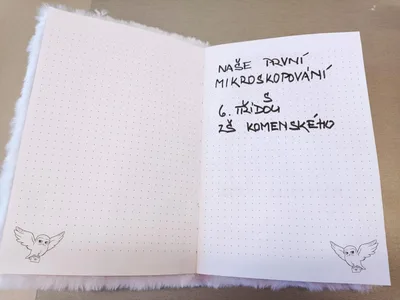 NAŠE PRVNÍ
MIKROSKOPOVÁNÍ
S
6. TŘÍDOU
ZŠ KOMENSKÉHO